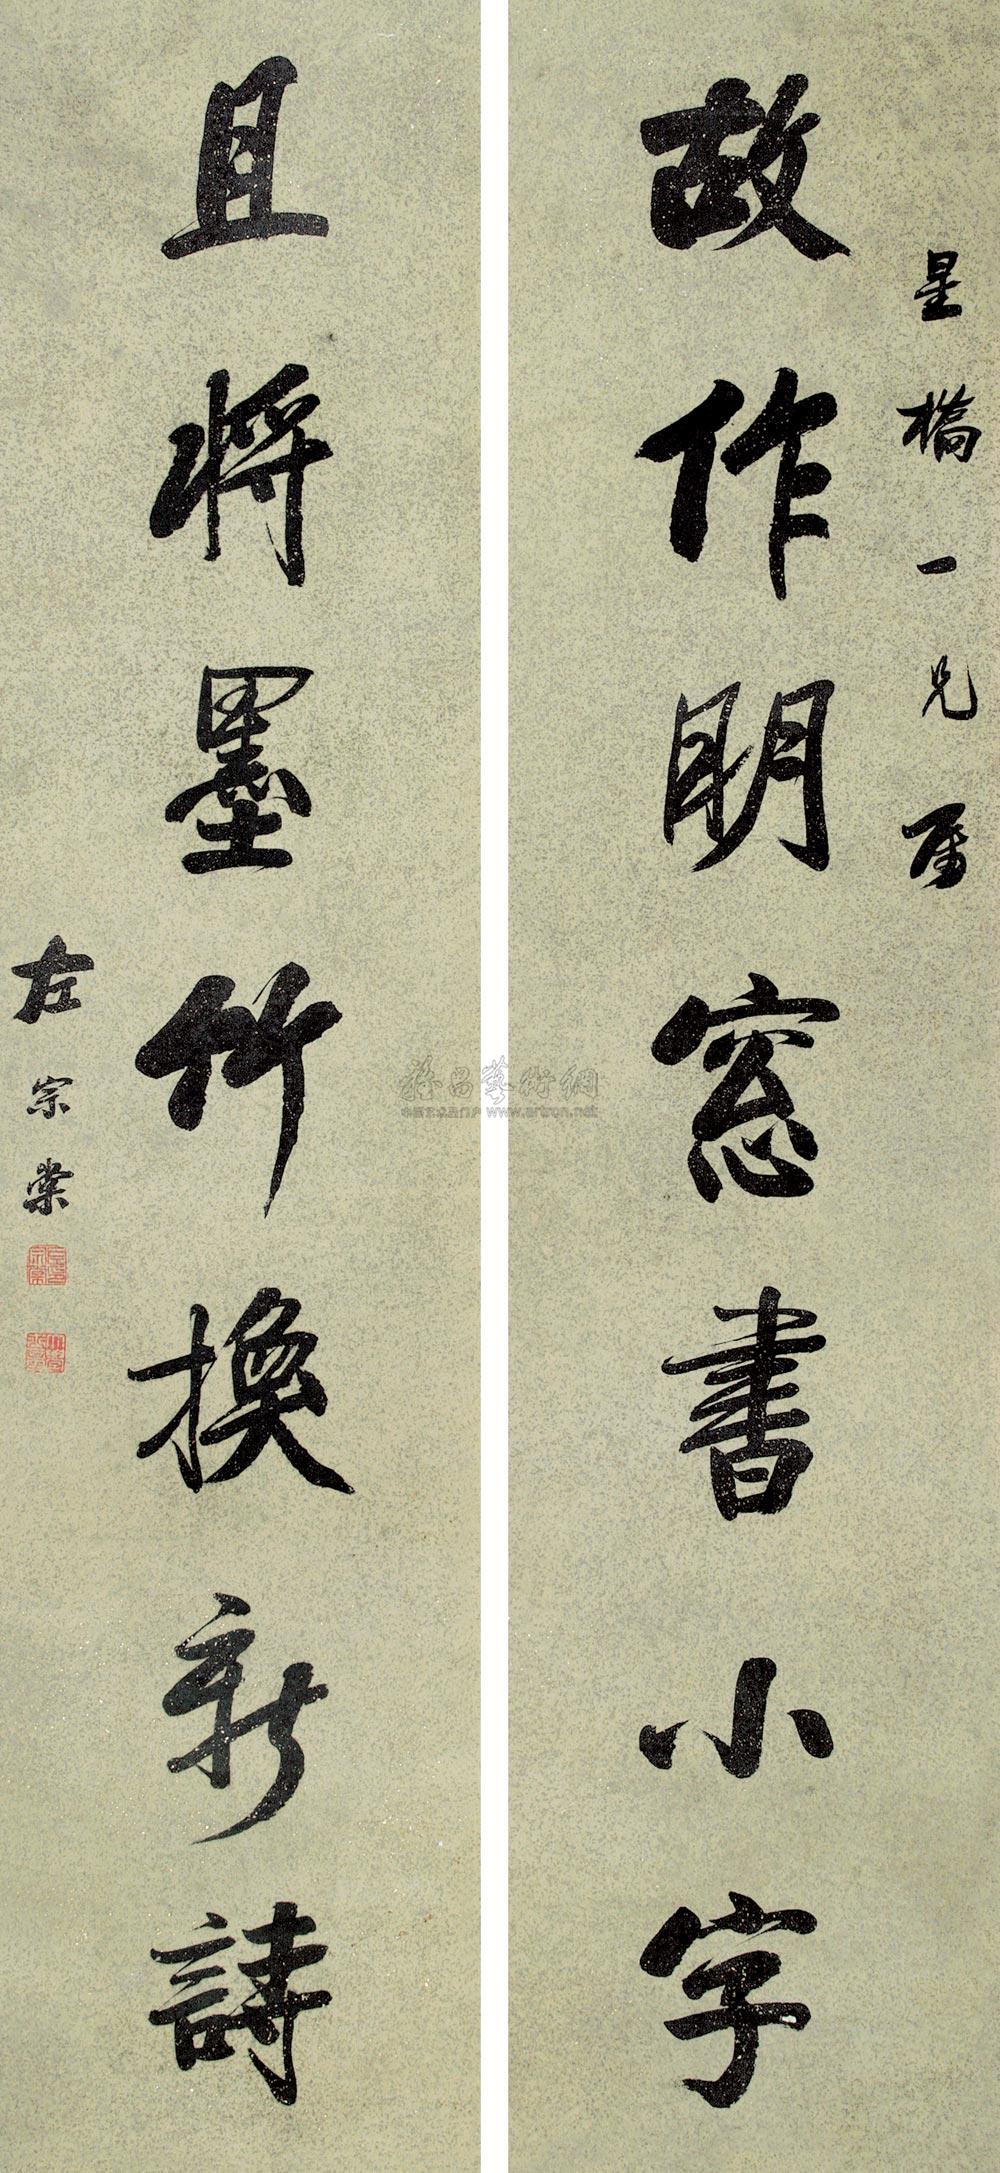 星橋一兄屬
故作明窓書小字
且將墨竹換新詩
左宗棠
雅昌藝術網
www.artron.net